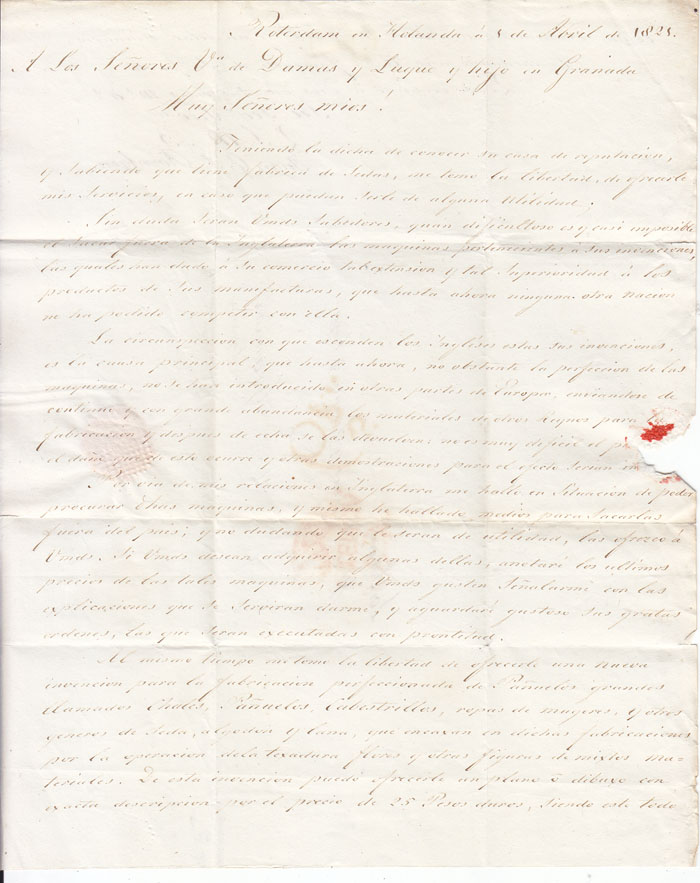 Roterdam en Holanda á 1 de Abril de 1821.
A Los Señores Va de Damas y Luque y hijo en Granada
Muy Señores mios!
Teniendo la dicha de conocer su casa de reputacion,
y Sabiendo que tiene fabrica de Sedas, me tomo la libertad, de ofrecerle
mis Servicios, en caso que puedan Serle de alguna Utilidad;
Sin duda Seran Vmds Sabedores, quan dificultoso es y casi imposible
el Sacar fuera de la Inglaterra las maquinas pertenecientes a Sus invenciones,
las quales han dado á Su comercio tal extension y tal Superioridad á los
productos de Sus manufacturas, que hasta ahora ninguna otra nacion
ne ha podido competir con Ella.
La circumspeccion con que esconden los Ingleses estas sus invenciones,
es la causa principal, que hasta ahora, no obstante la perfeccion de las
maquinas, no Se han introducido en otras partes de Europa, enviandose de
continuo y con grande abundancia los materiales de otros Reynos para la
fabricacion y despues de echa, se las devuelven; no es muy dificil el
el daño que de este ocurre y otras demostraciones para el efecto Serian
Por via de mis relaciones en Inglaterra me hallo en Situacion de poder
procurar Ehas maquinas, y mismo he hallado medios para Sacarlas
fuera del pais; y no dudando que le Seran de utilidad, las ofrezco á
Vmds. Si Vmds desean adquirir algunas dellas, anotaré los ultimos
precios de las tales maquinas, que Vmds gusten Señalarmi con las
explicaciones que Se Serviran darme, y aguardaré gustoso Sus gratas
ordenes, las que Seran executadas con prontitud.
Al mismo tiempo me tomo la libertad de ofrecerle una nueva
invencion para la fabricacion perfeccionada de Pañuelos grandes
llamados Chales, Pañuelos, Cabestrillos, ropas de mugeres, y otros
generos de Seda, algodon y lana, que encaxan en dichas fabricaciones
por la operacion dela texadura flores y otras figuras de mixtos ma-
teriales. De esta invencion puedo ofrecerle un plano ó dibuxo con
exacta descripcion por el precio de 25 Pesos duros, Siendo este todo